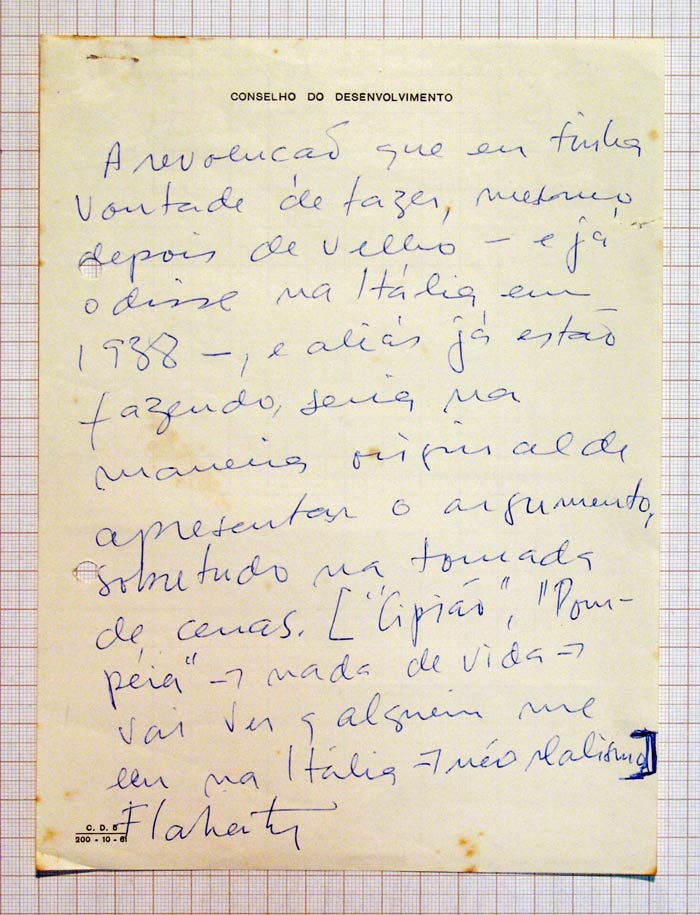 CONSELHO DO DESENVOLVIMENTO
A revolucaõ que eu tinha
vontade de fazer, mesmo
depois de velho – e já
o disse na Itália em
1938 –, e aliás já estão
fazendo, seria na
maneira original de
apresentar o argumento,
sobretudo na tomada
de cenas. ["Cipião", "Pom-
péia" → nada de vida →
vai ver q alguém me
leu na Itália → néo realismo]
Flaherty
C. D. 5
200 - 10 - 61